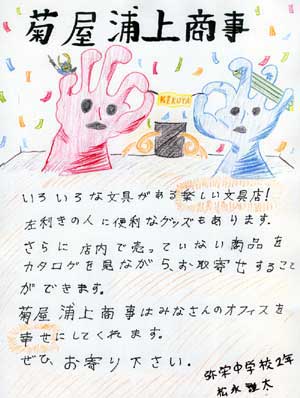 菊屋浦上商事
KIKUYA
いろいろな文具がある楽しい文具店!
左利きの人に便利なグッズもあります。
さらに店内で売っていない商品を
カタログを見ながら、お取寄せすること
ができます。
菊屋浦上商事はみなさんのオフィスを
幸せにしてくれます。
ぜひ、お寄り下さい。
弥栄中学校2年
松永